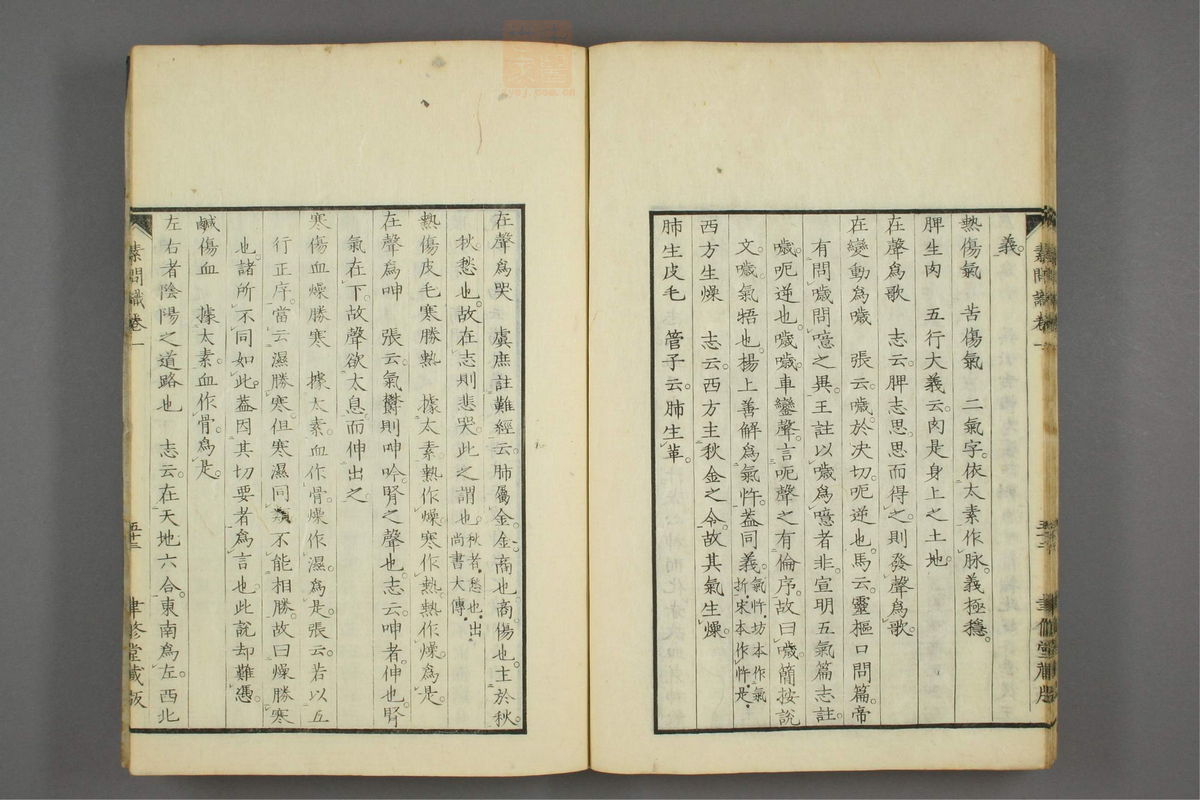 義。
熱傷氣　苦傷氣　二氣字。依太素作脉。義極穩。
脾生肉　五行大義云。肉是身上之土地。
在聲爲歌　志云。脾志思。思而得之。則發聲爲歌。
在變動爲噦　張云。噦。於決切。呃逆也。馬云。靈樞口問篇。帝
有問噦問噫之異。王註以噦爲噫者非。宣明五氣篇志註。
噦。呃逆也。噦噦。車鑾聲。言呃聲之有倫序。故曰噦。簡按說
文。噦。氣牾也。楊上善解爲氣忤。蓋同義。氣忤。坊本作氣折。宋本作忤。是。
西方生燥　志云。西方主秋金之令。故其氣生燥。
肺生皮毛　管子云。肺生革。
素問識卷一
聿修堂藏版
在聲爲哭　虞庶註難經云。肺屬金。金商也。商傷也。主於秋。
秋愁也。故在志則悲哭。此之謂也。秋者。愁也。出尚書大傳。
熱傷皮毛寒勝熱　據太素。熱作燥。寒作熱。熱作燥。爲是。
在聲爲呻　張云。氣鬱則呻吟。腎之聲也。志云。呻者伸也。腎
氣在下。故聲欲太息而伸出之。
寒傷血燥勝寒　據太素。血作骨。燥作濕。爲是。張云。若以五
行正序。當云濕勝寒。但寒濕同類。不能相勝。故曰燥勝寒
也。諸所不同如此。蓋因其切要者爲言也。此說却難憑。
鹹傷血　據太素。血作骨。爲是。
左右者陰陽之道路也　志云。在天地六合。東南爲左。西北
素問識卷一
五十三
聿修堂藏版